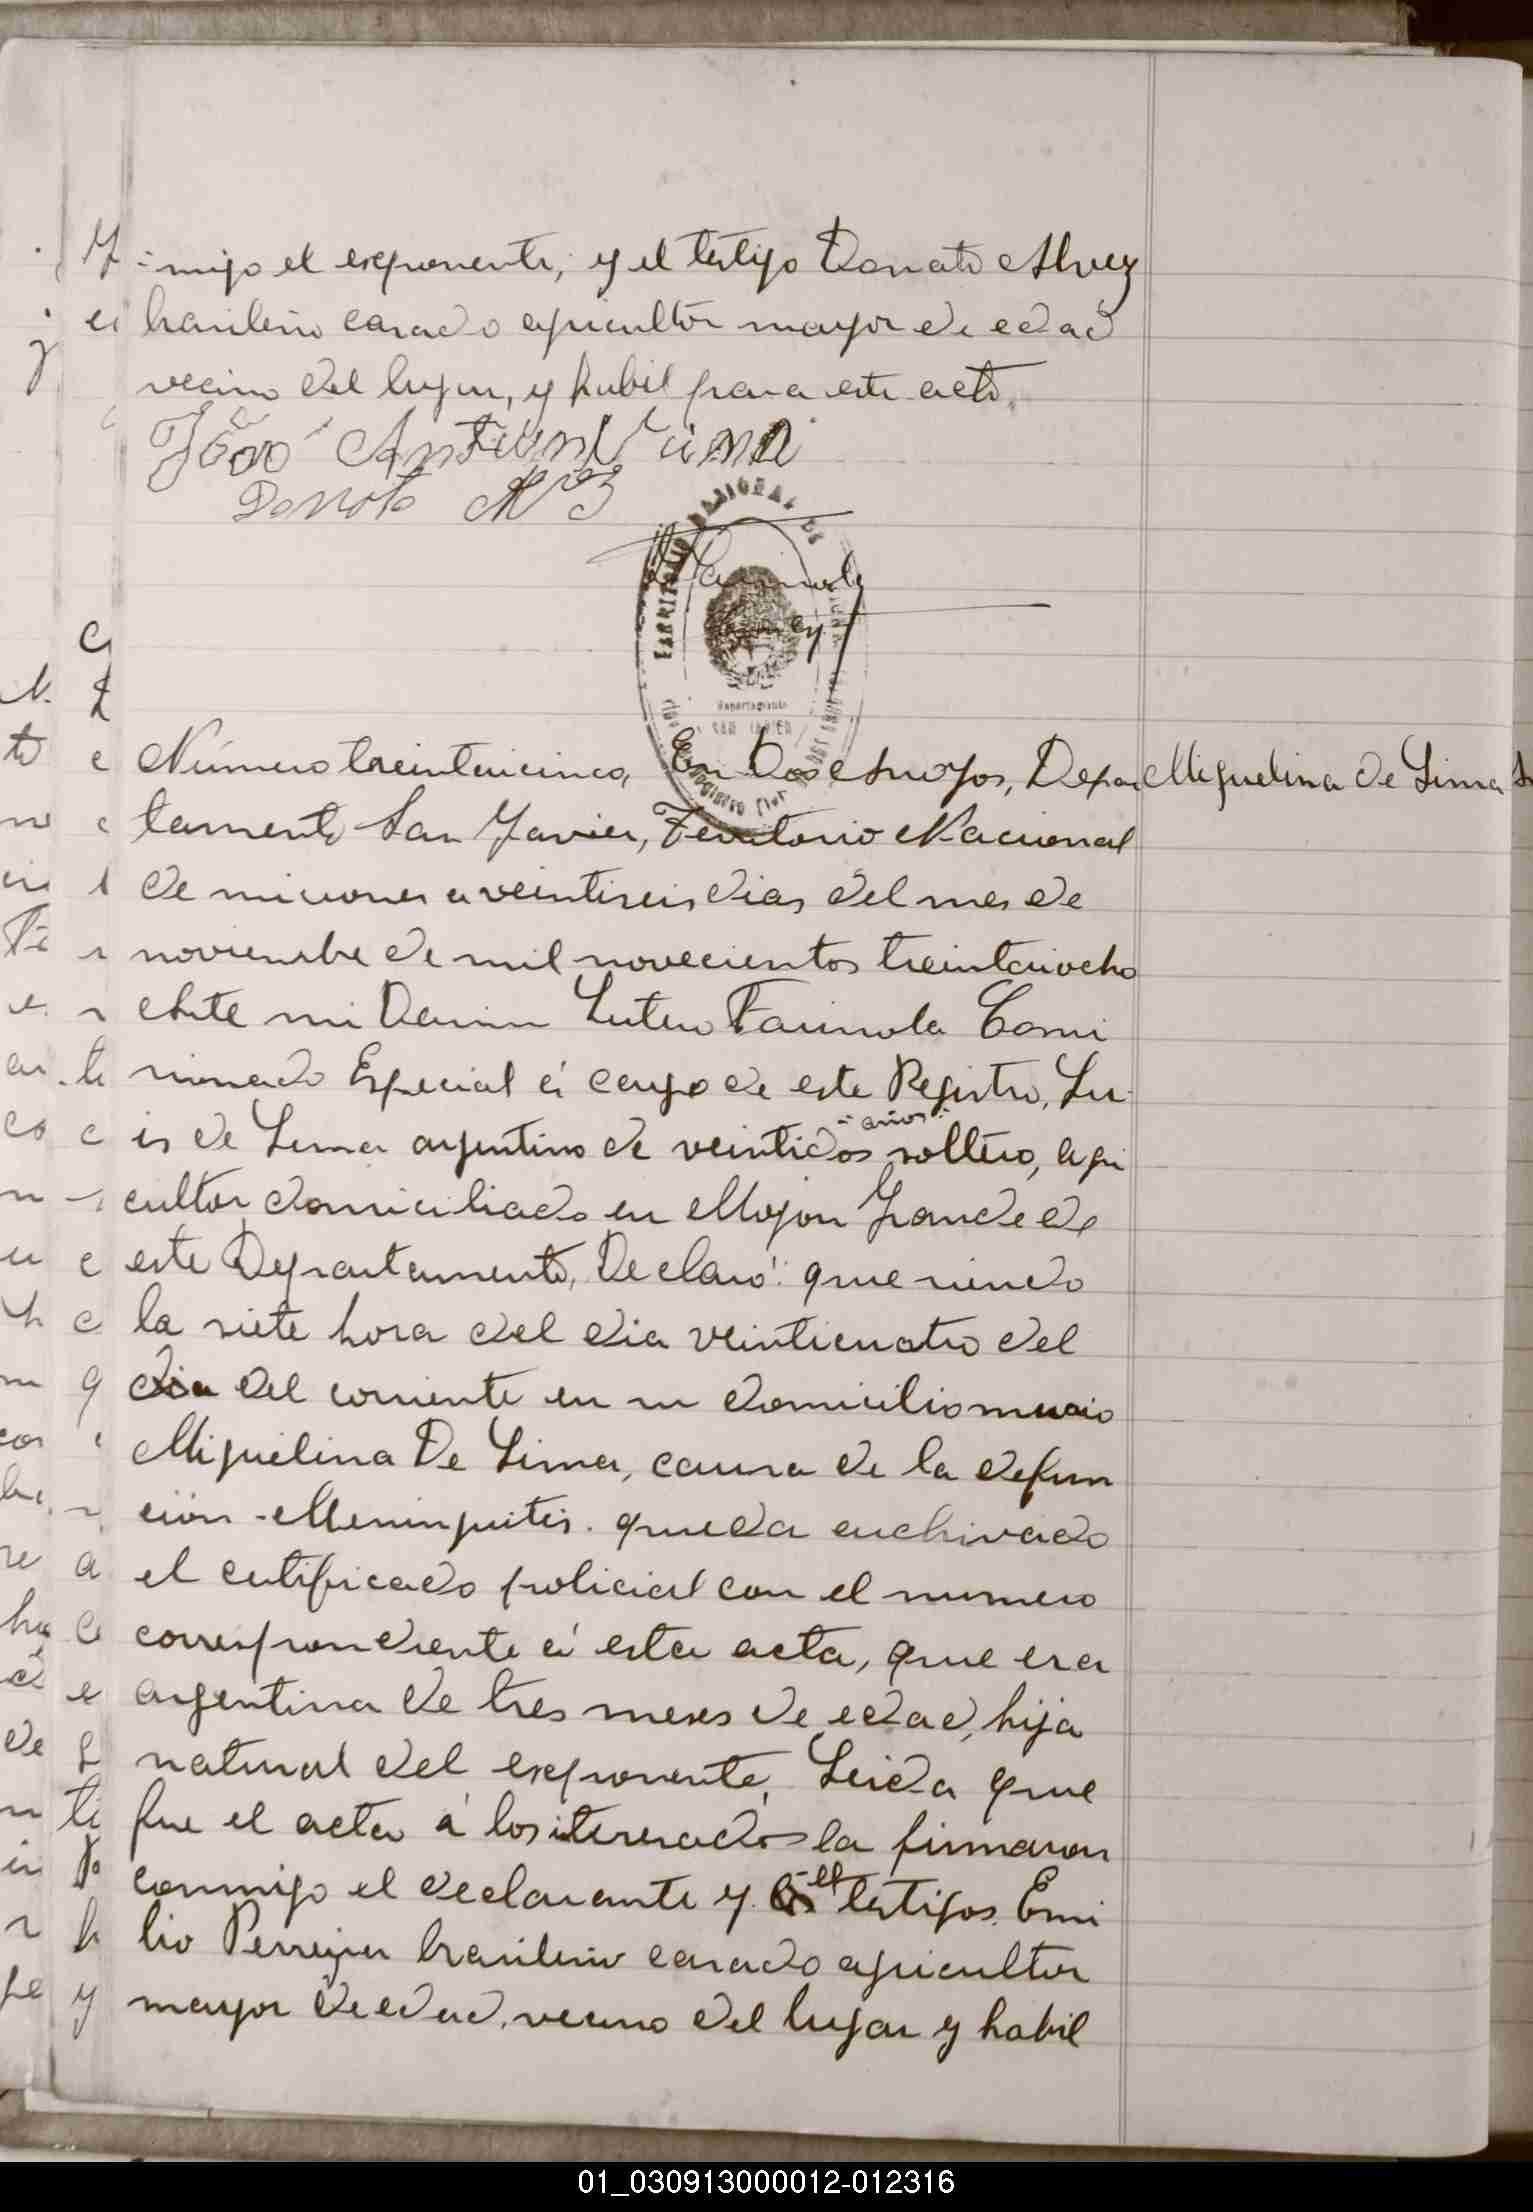 migo el exponente, y el testigo Donato Alvez
brasileño casado agricultor mayor de edad
vecino del lugar, y habil para este acto.
João Antun
Donato
TERRITORIO NACIONAL DE
Departamento
SAN JAVIER
Número treintaicinco, En Dos Arroyos, Depar
Miguelina de Lima
tamento San Javier, Territorio Nacional
de misiones a veintiseis dias del mes de
noviembre de mil novecientos treintaiocho
Ante mi Dawin Lutero Farinola Comi
sionado Especial á cargo de este Registro, Lu
is de Lima argentino de veintidos - años - soltero, agri
cultor domiciliado en Mojon Grande de
este Departamento, Declaró: que siendo
la siete hora del dia veinticuatro del
dia del corriente en su domicilio murio
Miguelina De Lima, causa de la defun
ción - Meninguitis. queda archivado
el certificado policial con el numero
correspondiente á esta acta, que era
argentina de tres meses de edad, hija
natural del exponente, Leida que
fue el acta á los interesados la firmaron
conmigo el declarante y el testigos Emi
lio Perreyra brasileño casado agricultor
mayor de edad, vecino del lugar y habil
01_030913000012-012316